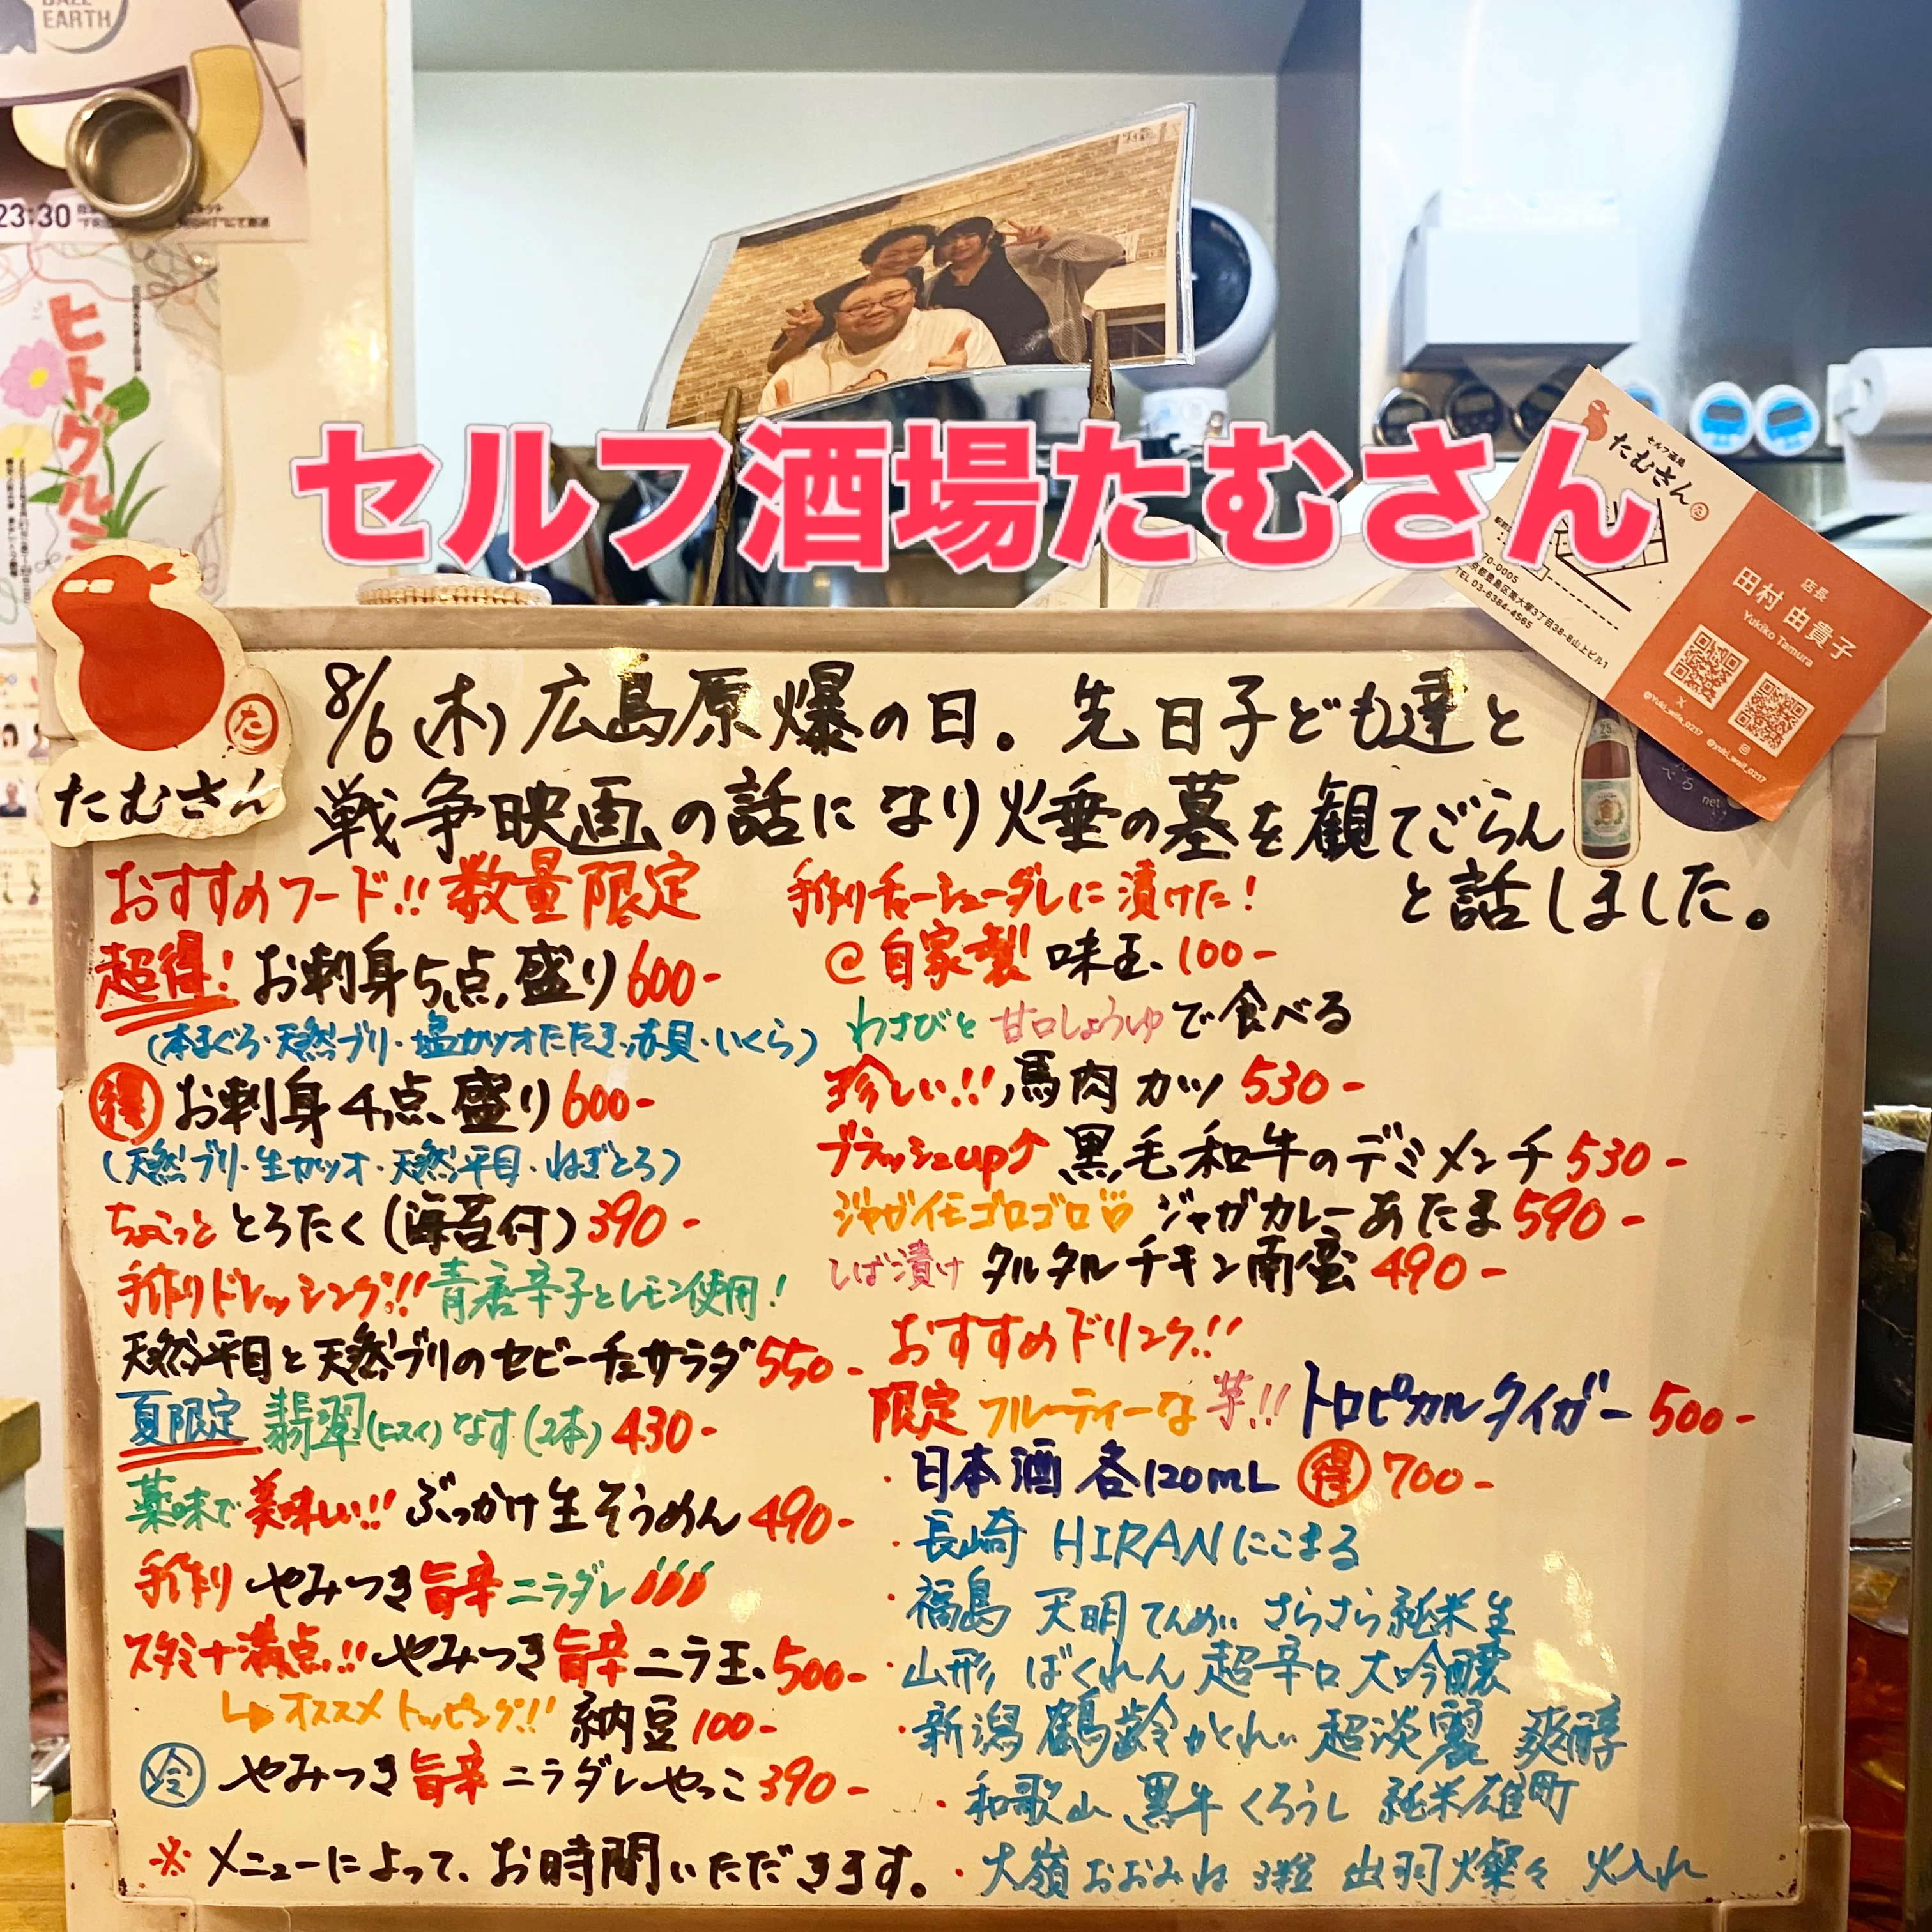 EARTH
23:30
ヒトグルミ
セルフ酒場たむさん
セルフ酒場
たむさん
70-0005
京都豊島区南大塚3丁目38-8山上ビル1
TEL 03-6384-4565
店長
田村 由貴子
Yukiko Tamura
X
@yuki_wait_0217
たむさん
た
8/6(木)広島原爆の日。先日子ども達と
戦争映画の話になり火垂の墓を観てごらん
と話しました。
おすすめフード!!数量限定
超得!お刺身5点盛り600-
(本まぐろ・天然ブリ・塩カツオたたき・赤貝・いくら)
得 お刺身4点盛り600-
(天然ブリ・生カツオ・天然平目・ねぎとろ)
ちょこっと とろたく(海苔付)390-
手作りドレッシング!!青唐辛子とレモン使用!
天然平目と天然ブリのセビーチェサラダ550-
夏限定 翡翠(ヒスイ)なす(2本)430-
薬味で美味しい!!ぶっかけ生そうめん490-
手作り やみつき旨辛ニラダレ
スタミナ満点!!やみつき旨辛ニラ玉500-
オススメトッピング!!納豆100-
冷 やみつき旨辛ニラダレやっこ390-
※メニューによって、お時間いただきます。
手作りチャーシューダレに漬けた!
@自家製 味玉100-
わさびと甘口しょうゆで食べる
珍しい!!馬肉カツ530-
ブラッシュup↑黒毛和牛のデミメンチ530-
ジャガイモゴロゴロ ジャガカレーあたま590-
しば漬け タルタルチキン南蛮490-
おすすめドリンク!!
限定 フルーティーな芋!!トロピカルタイガー500-
・日本酒 各120mL 得 700-
・長崎 HIRAN にこまる
・福島 天明 てんめい さらさら純米生
・山形 ばくれん 超辛口 大吟醸
・新潟 鶴齢 かくれい 超淡麗 爽醇
・和歌山 黒牛 くろうし 純米雄町
・大嶺 おおみね 3粒 出羽燦々 火入れ